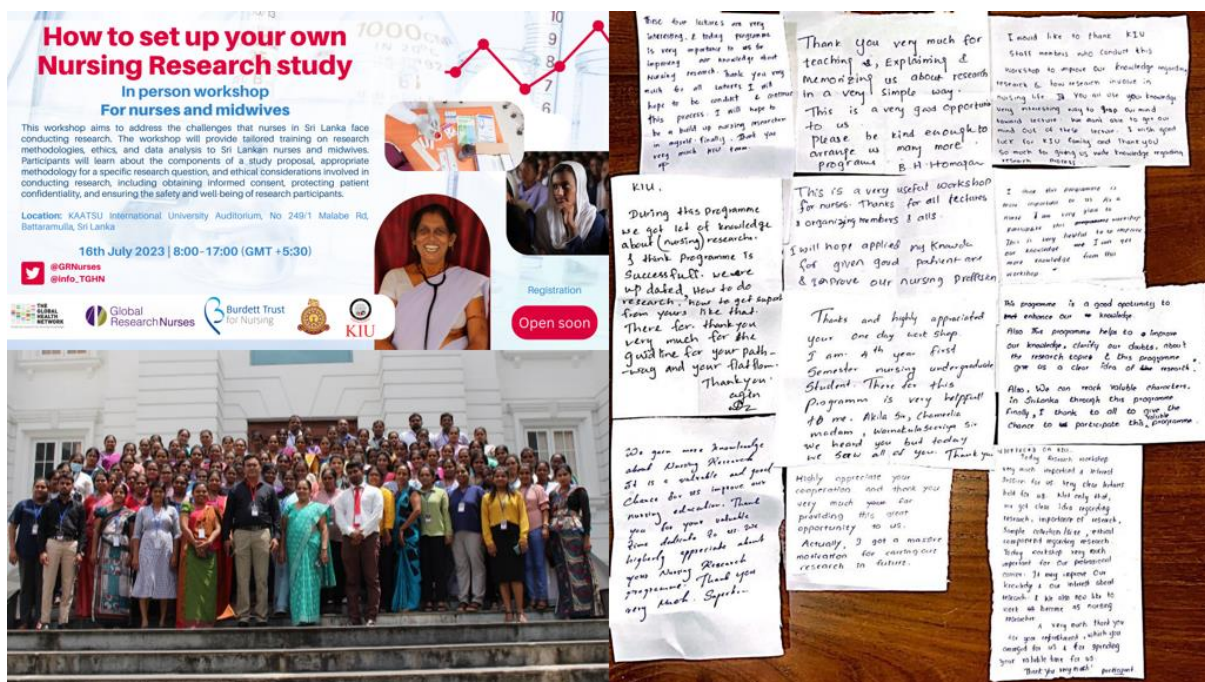 How to set up your own
Nursing Research study
In person workshop
For nurses and midwives
This workshop aims to address the challenges that nurses in Sri Lanka face
conducting research. The workshop will provide tailored training on research
methodologies, ethics, and data analysis to Sri Lankan nurses and midwives.
Participants will learn about the components of a study proposal, appropriate
methodology for a specific research question, and ethical considerations involved in
conducting research, including obtaining informed consent, protecting patient
confidentiality, and ensuring the safety and well-being of research participants.
Location: KAATSU International University Auditorium, No 249/1 Malabe Rd,
Battaramulla, Sri Lanka
16th July 2023 | 8:00-17:00 (GMT +5:30)
@GRNurses
@info_TGHN
Registration
Open soon
THE
GLOBAL
HEALTH
NETWORK
Global
ResearchNurses
Burdett Trust
for Nursing
KIU
1000cm
10
9
8
7
6
These four lectures are very
interesting, & today programme
is very importance to us for
improving our knowledge about
Nursing research. Thank you very
much for all lectures I will
hope to be conduct & continue
this process. I will hope to
be a build up nursing researcher
in myself. Finally, Thank you
very much
Thank you very much for
teaching &, Explaining &
Memorizing us about research
in a very simple way.
This is a very good opportunity
to us.
Please be kind enough to
arrange us many more
programs
I would like to thank KIU
Staff members who conduct this
Workshop to improve our knowledge regarding
research & how research involve in
nursing life. you all use your knowledge
very interesting way to our mind
toward lecture. we able to get our
mind out of these lecture. I wish good
luck for KIU family and thank you
So much for giving us knowledge regarding
research
KIU.
During this Programme
we got lot of knowledge
about (nursing) research.
I think programme is
Successfull. we were
up dated, How to do
research, how to get support
from yours like that.
There for thank you
very much for the
guidline for your path-
-way and your flatform.
Thank you.
This is a very useful workshop
for nurses. Thanks for all lectures
& organizing members & alls.
I will hope applied my
for given good patient
& improve our nursing proffesion
I this programme is
important to us. As a
nurse I am very glad to
participate this programme workshop
This is very helpful to improve
our knowledge and I can get
more knowledge from this
workshop
Thanks and highly appreciated
your one day work shop.
I am 4th year first
Semester nursing undergraduate
Student. There for this
Programm is very helpfull
to me. Akila Sir,
madam, Sir
we heard you but today
we saw all of you. Thank you
This programme is a good opotunity to
enhance our knowledge.
Also The programme helps to improve
our knowledge, clarify our doubts, about
the research topics & this programme
give us a clear idea of the research.
Also, We can reach valuble characters.
in Srilanka through this programme
finally, I thank to all to give the valuble
Chance to participate this programme.
We gain more knowledge
about Nursing Research
It is a valuable and good
Chance for us improve our
nursing education. Thank
you for your valuable
time dedicate to us. We
highly appreciate about
your Nursing Research
programme! Thank you
very Much.
Highly appreciate your
cooperation and thank you
very much for
providing this great
opportunity to us.
Actually, I got a massive
motivation for carring out
research in future.
Today Research workshop
very much important & interest
session for us. Very clear lectures
held for us. Not only that,
we got clear idea regarding
research, importance of research,
Sample , ethical
component regarding research.
Today workshop very much
important for our professional
career. It may improve our
knowledge & our interest about
research. I also like to
work become as nursing
researcher
very much thank you
for your refreshment, which you
arranged for us & for spending
your valuble time for us.
Thank you very much! participant